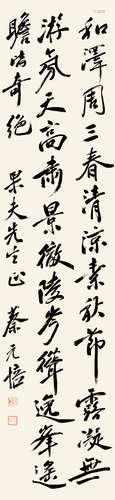 和澤周三春清涼素秋節露凝無
游氛天高肅景澈陵岑聳逸峯遥
瞻皆奇絕 果夫先生正 蔡元培